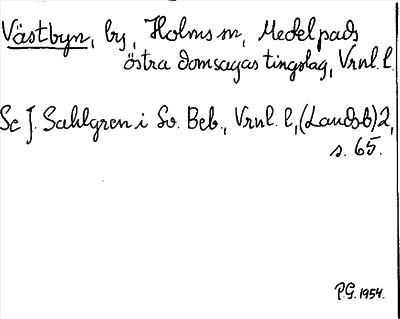 Västbyn, by, Holms sn, Medelpads
östra domsagas tingslag, Vrnl. l.
Se J. Sahlgren i Sv. Beb., Vrnl. l, (Landsb) 2,
s. 65.
P.G. 1954.